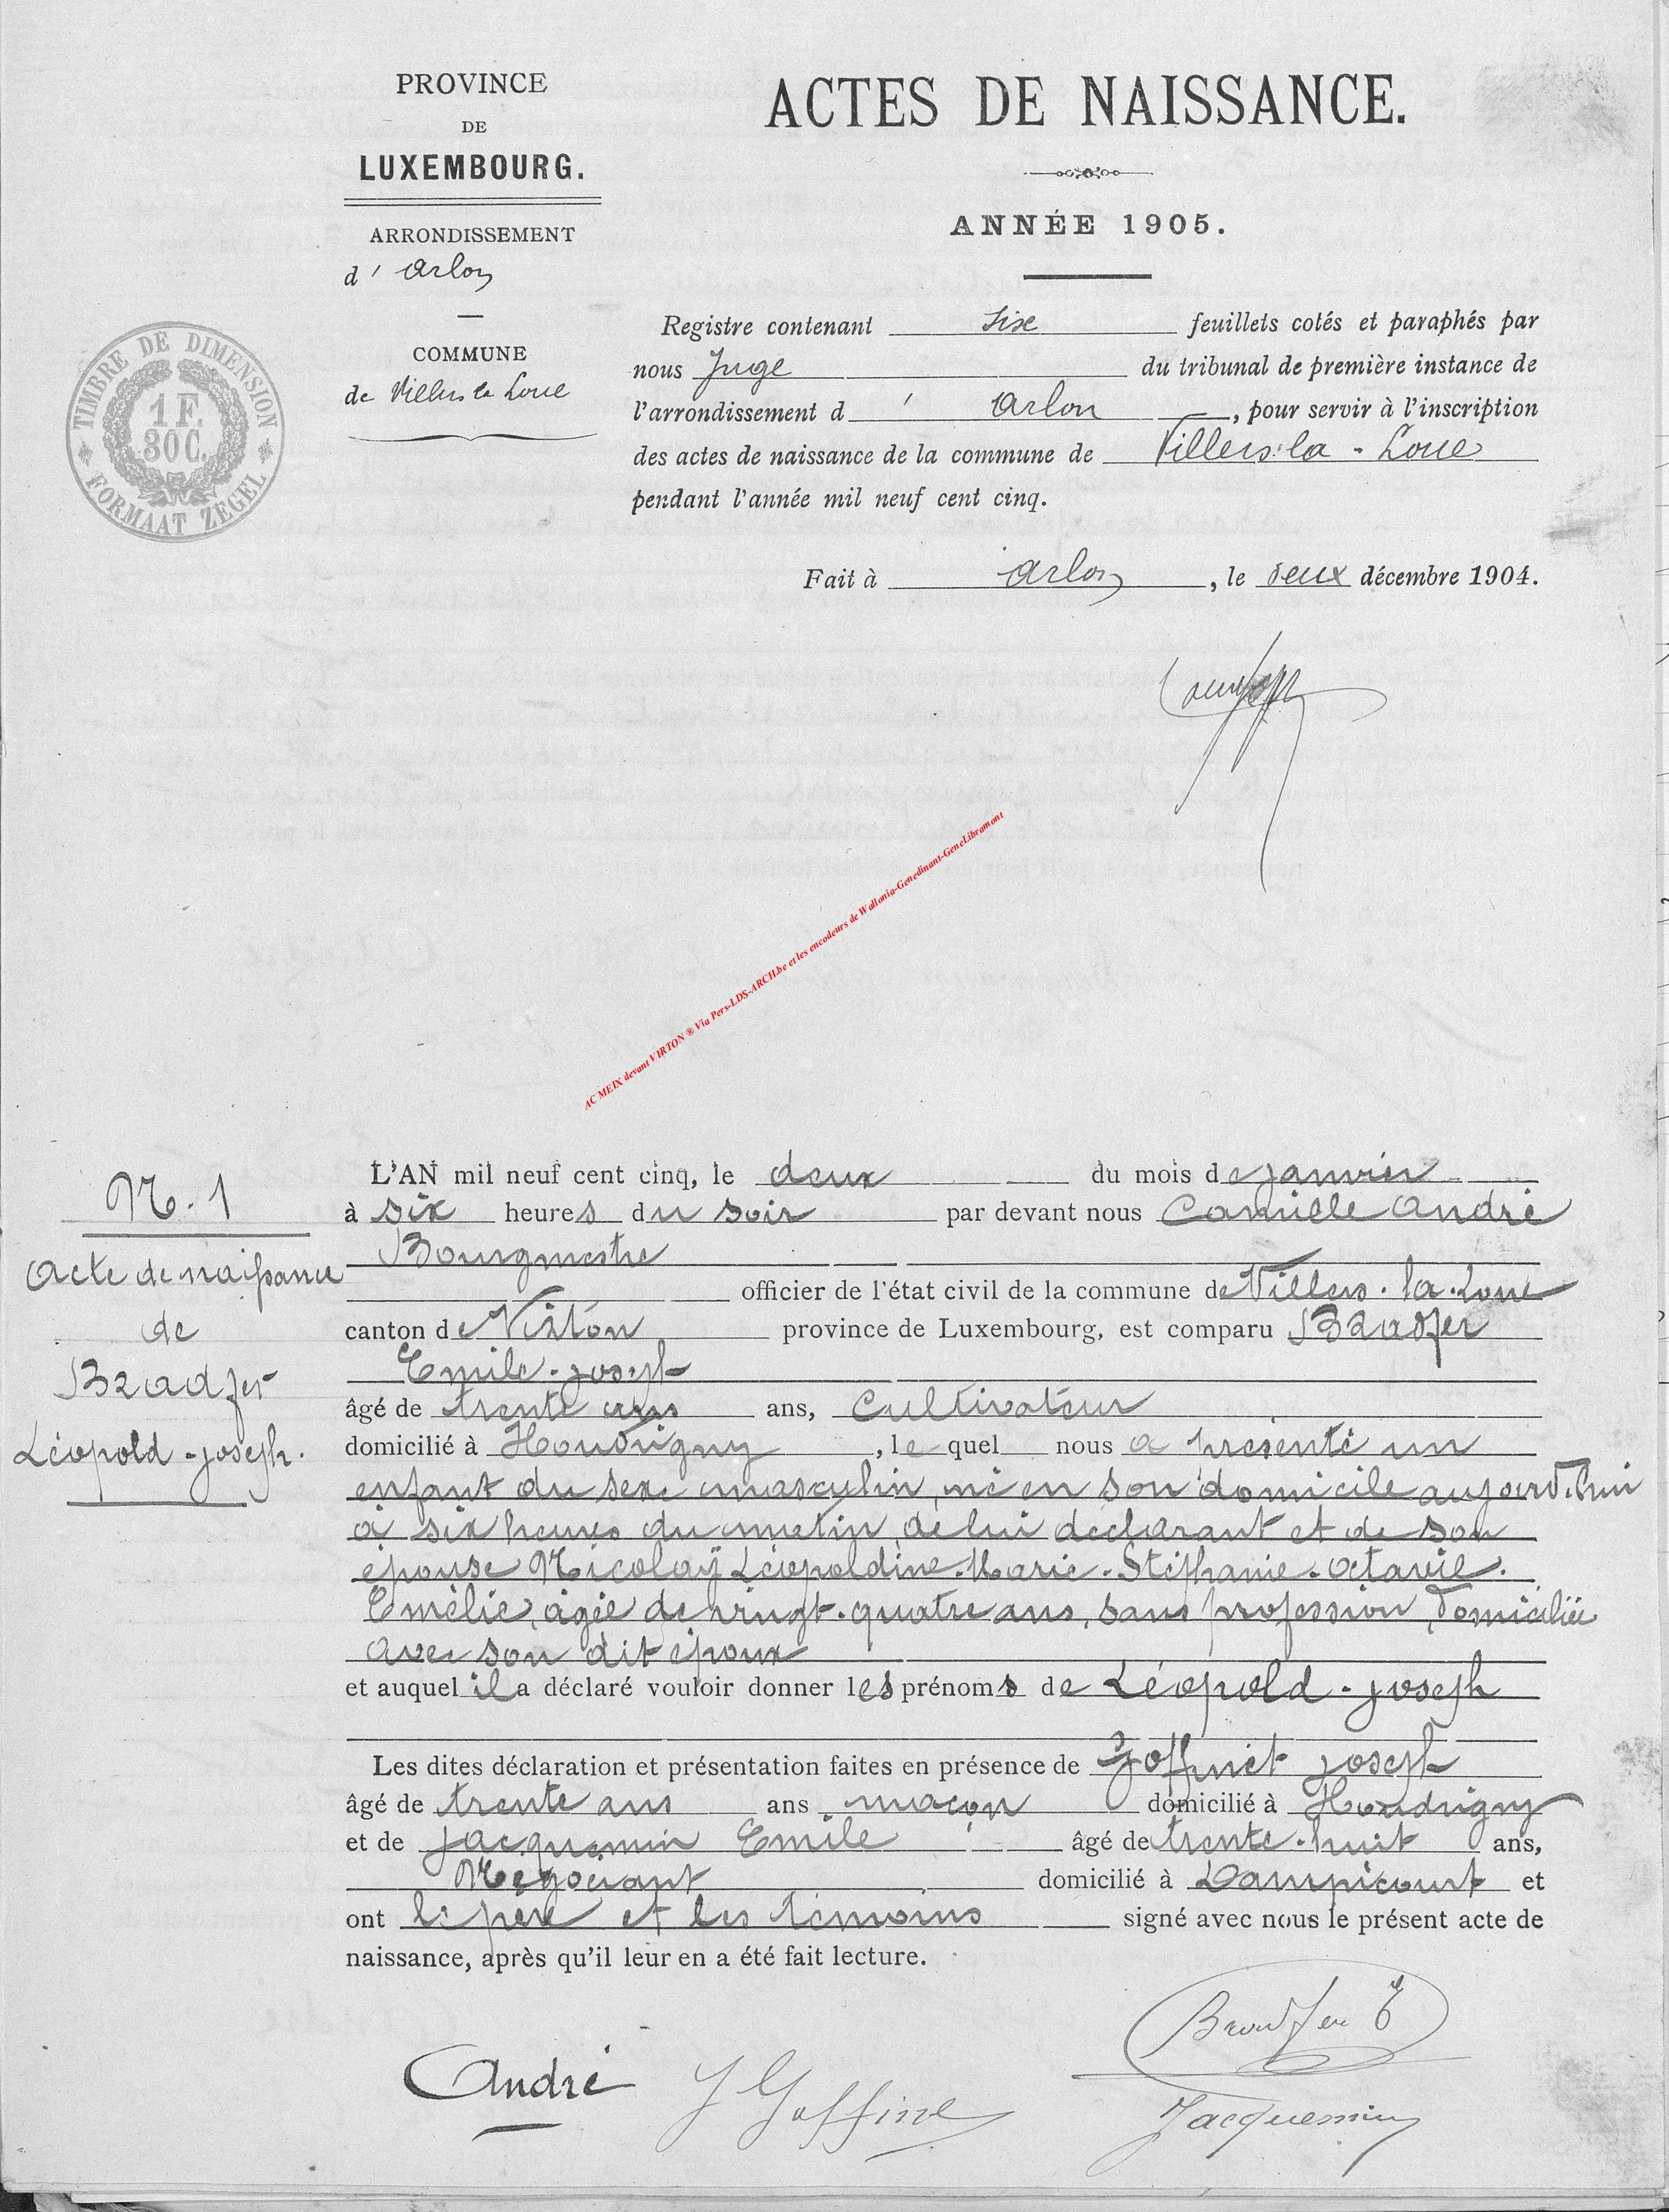 PROVINCE
DE
LUXEMBOURG.
ARRONDISSEMENT
d' Arlon
COMMUNE
de Villers la Loue
TIMBRE DE DIMENSION
1 F.
30 C.
FORMAAT ZEGEL
ACTES DE NAISSANCE.
ANNÉE 1905.
Registre contenant six feuillets cotés et paraphés par
nous Juge du tribunal de première instance de
l'arrondissement d' Arlon, pour servir à l'inscription
des actes de naissance de la commune de Villers-la-Loue
pendant l'année mil neuf cent cinq.
Fait à Arlon, le deux décembre 1904.
AC MEIX devant VIRTON ® Via Pers-LDS-ARCH.be et les encodeurs de Wallonia-Genedinant-GeneLibramont
N. 1
Acte de naissance
de
Bradfer
Léopold-Joseph.
L'AN mil neuf cent cinq, le deux du mois de janvier
à six heures du soir par devant nous Camille André
Bourgmestre
officier de l'état civil de la commune de Villers-la-Loue
canton de Virton province de Luxembourg, est comparu Bradfer
Emile-Joseph
âgé de trente ans ans, Cultivateur
domicilié à Houdrigny, lequel nous a présenté un
enfant du sexe masculin, né en son domicile aujourd'hui
à six heures du matin de lui déclarant et de son
épouse Nicolaÿ Léopoldine-Marie-Stéphanie-Octavie-
Emélie, âgée de vingt-quatre ans, sans profession, domiciliée
avec son dit époux
et auquel il a déclaré vouloir donner les prénoms de Léopold-Joseph
Les dites déclaration et présentation faites en présence de Goffinet Joseph
âgé de trente ans ans maçon domicilié à Houdrigny
et de Jacquemin Emile âgé de trente-huit ans,
Négociant domicilié à Dampicourt et
ont le père et les témoins signé avec nous le présent acte de
naissance, après qu'il leur en a été fait lecture.
Bradfer E
André
J Goffinet
Jacquemin